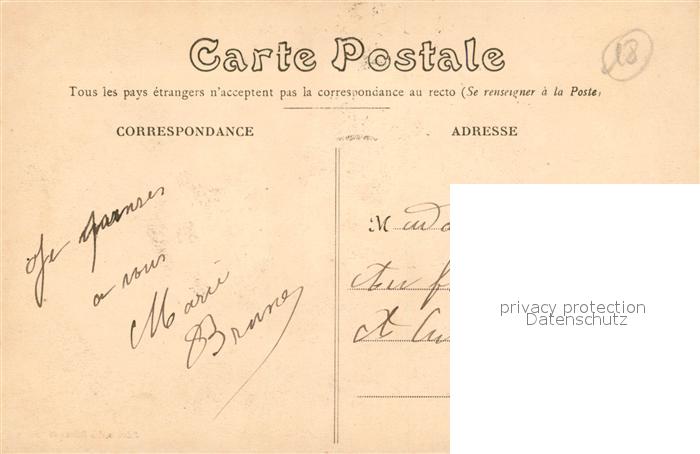 Carte Postale
18
Tous les pays étrangers n'acceptent pas la correspondance au recto (Se renseigner à la Poste)
CORRESPONDANCE
ADRESSE
Je
a vous
Marie
Brune
M
privacy protection
Datenschutz